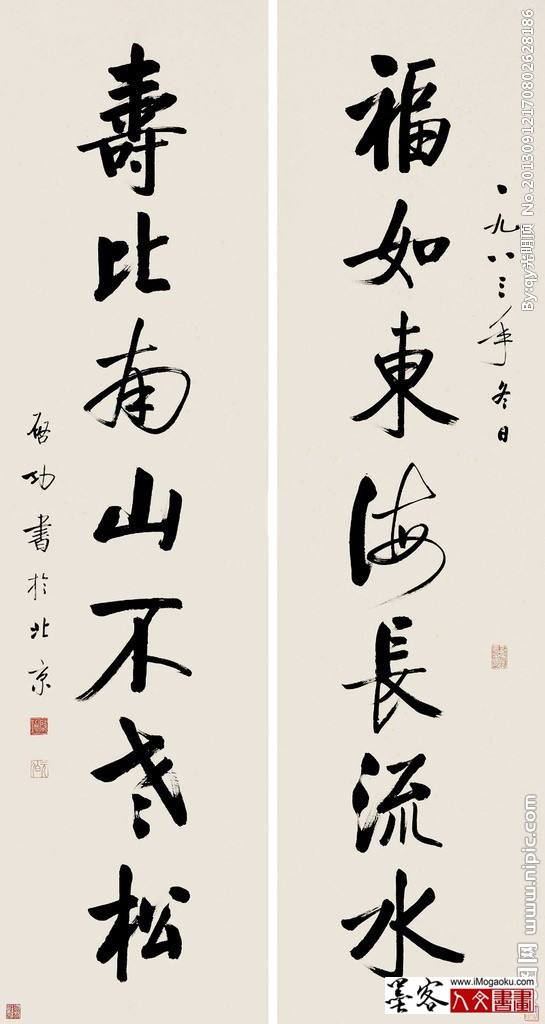 福如東海長流水
一九八三年冬日
壽比南山不老松
啓功書於北京
By:qy光明网 No.20130912170802628186
www.nipic.com
www.iMogaoku.com
墨客人文書畫